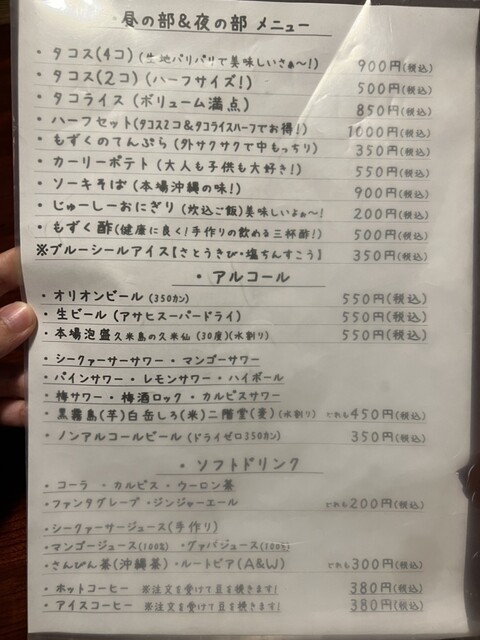 ・昼の部＆夜の部 メニュー
・タコス(4コ)(生地パリパリで美味しいさぁ〜!) 900円(税込)
・タコス(2コ)(ハーフサイズ!) 500円(税込)
・タコライス(ボリューム満点) 850円(税込)
・ハーフセット(タコス2コ&タコライスハーフでお得!) 1000円(税込)
・もずくのてんぷら(外サクサクで中もっちり) 350円(税込)
・カーリーポテト(大人も子供も大好き!) 550円(税込)
・ソーキそば(本場沖縄の味!) 900円(税込)
・じゅーしーおにぎり(炊込ご飯)美味しいよぉ〜! 200円(税込)
・もずく酢(健康に良く!手作りの飲める三杯酢!) 500円(税込)
※ブルーシールアイス【さとうきび・塩ちんすこう】 350円(税込)
・アルコール
・オリオンビール(350カン) 550円(税込)
・生ビール(アサヒスーパードライ) 550円(税込)
・本場泡盛久米島の久米仙(30度)(水割り) 550円(税込)
・シークァーサーサワー・マンゴーサワー
・パインサワー・レモンサワー・ハイボール
・梅サワー・梅酒ロック・カルピスサワー
・黒霧島(芋)白岳しろ(米)二階堂(麦)(水割り) どれも450円(税込)
・ノンアルコールビール(ドライゼロ350カン) 350円(税込)
・ソフトドリンク
・コーラ ・カルピス・ウーロン茶
・ファンタグレープ・ジンジャーエール どれも200円(税込)
・シークァーサージュース(手作り)
・マンゴージュース(100%) ・グァバジュース(100%)
・さんぴん茶(沖縄茶)・ルートビア(A&W) どれも300円(税込)
・ホットコーヒー ※注文を受けて豆を挽きます! 380円(税込)
・アイスコーヒー ※注文を受けて豆を挽きます! 380円(税込)